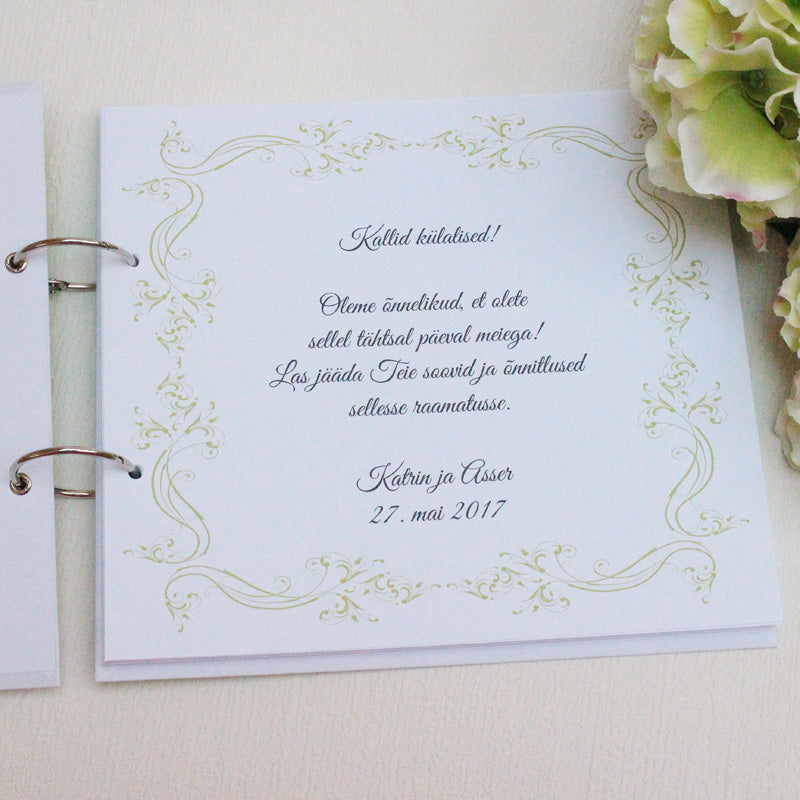 Kallid külalised!
Oleme õnnelikud, et olete
sellel tähtsal päeval meiega!
Las jääda Teie soovid ja õnnitlused
sellesse raamatusse.
Katrin ja Asser
27. mai 2017